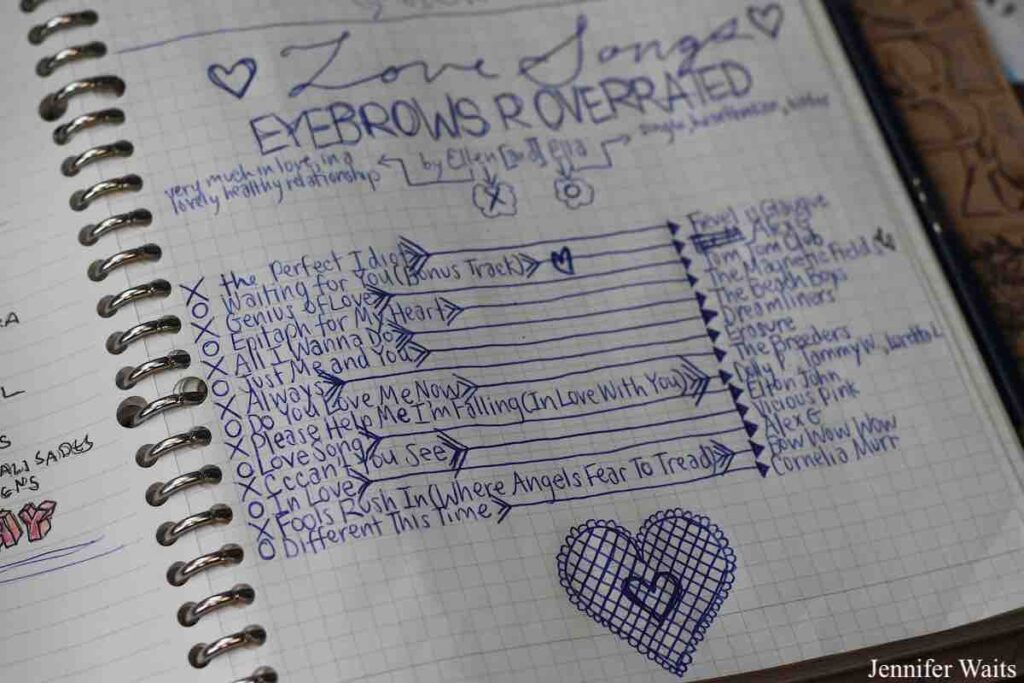 Love Songs
EYEBROWS R OVERRATED
by Ellen Ella
very much in love, in a
lovely healthy relationship
single,
X the Perfect Idiot Fievel is Glauque
O Waiting for You (Bonus Track) Alex G
X Genius of Love Tom Tom Club
O Epitaph for My Heart The Magnetic Fields
X All I Wanna Do The Beach Boys
O Just Me and You Dreamliners
X Always Erasure
O Do You Love Me Now The Breeders
X Please Help Me I'm Falling (In Love With You) Dolly P, Tammy W., Loretta L
O Love Song Elton John
X Cccan't You See Vicious Pink
O In Love Alex G
X Fools Rush In (Where Angels Fear To Tread) Bow Wow Wow
O Different This Time Cornelia Murr
ALISADES
Jennifer Waits